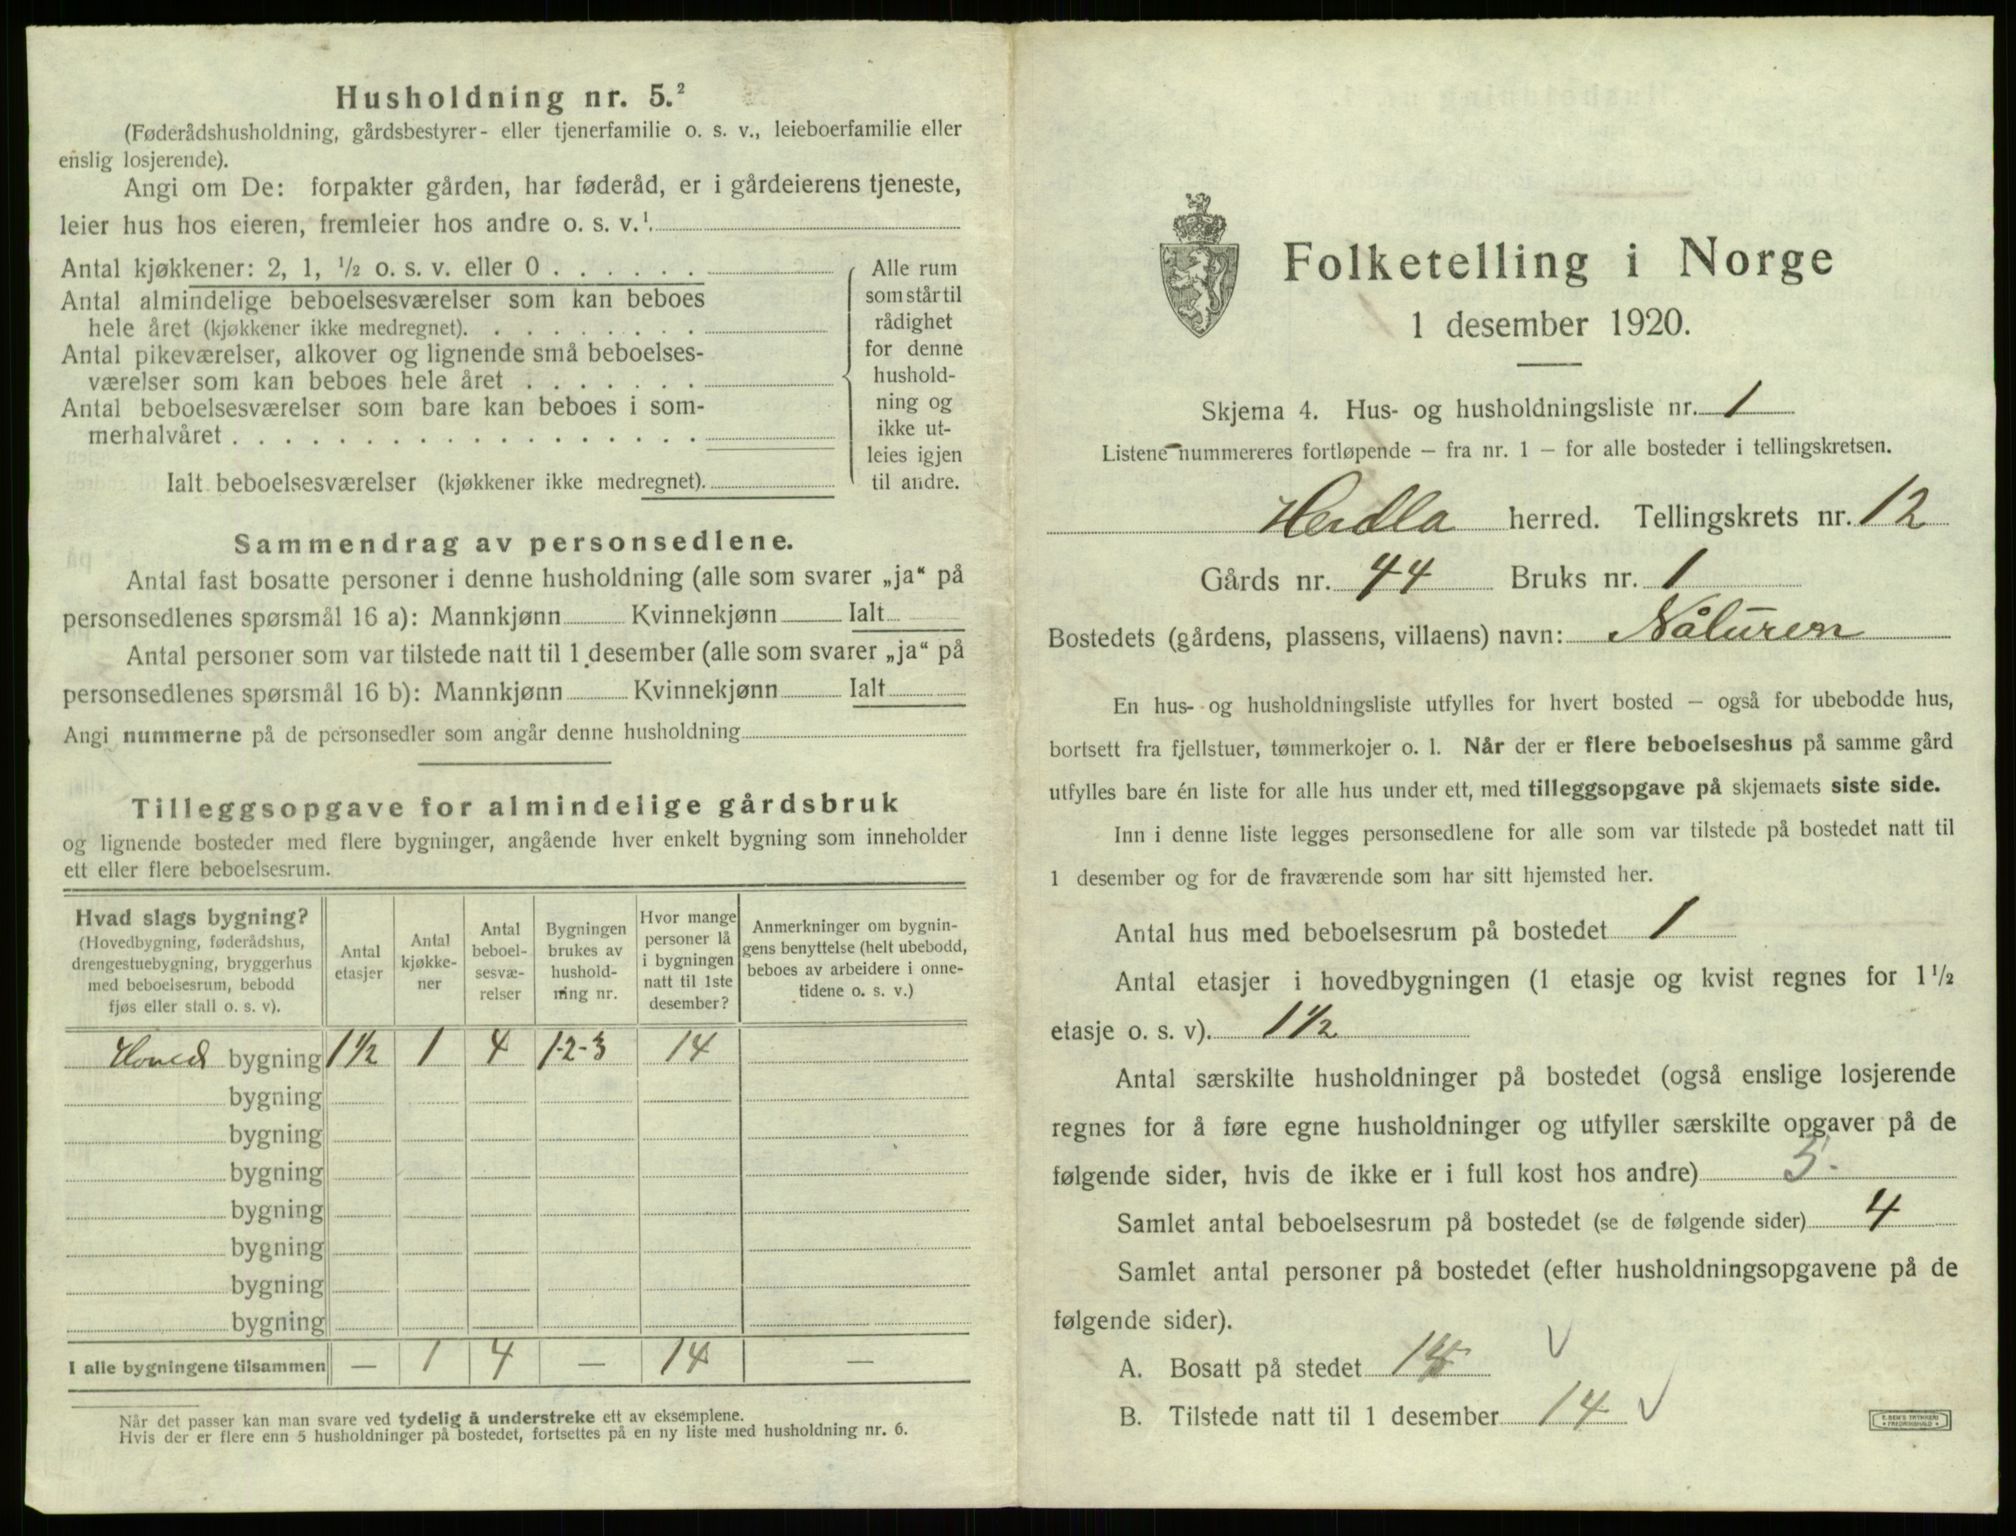 Husholdning nr. 5.²
(Føderådshusholdning, gårdsbestyrer- eller tjenerfamilie o. s. v., leieboerfamilie eller
enslig losjerende).
Angi om De: forpakter gården, har føderåd, er i gårdeierens tjeneste,
leier hus hos eieren, fremleier hos andre o. s. v.¹
Antal kjøkkener: 2, 1, ½ o. s. v. eller 0 . . . . . .
Antal almindelige beboelsesværelser som kan beboes
hele året (kjøkkener ikke medregnet). . . . . . . . .
Antal pikeværelser, alkover og lignende små beboelses-
værelser som kan beboes hele året . . . . . . .
Antal beboelsesværelser som bare kan beboes i som-
merhalvåret . . . . . . . . . . . . . . . . . .
Ialt beboelsesværelser (kjøkkener ikke medregnet).
Alle rum
som står til
rådighet
for denne
hushold-
ning og
ikke ut-
leies igjen
til andre.
Sammendrag av personsedlene.
Antal fast bosatte personer i denne husholdning (alle som svarer „ja“ på
personsedlenes spørsmål 16 a): Mannkjønn Kvinnekjønn Ialt
Antal personer som var tilstede natt til 1 desember (alle som svarer „ja“ på
personsedlenes spørsmål 16 b): Mannkjønn Kvinnekjønn Ialt
Angi nummerne på de personsedler som angår denne husholdning
Tilleggsopgave for almindelige gårdsbruk
og lignende bosteder med flere bygninger, angående hver enkelt bygning som inneholder
ett eller flere beboelsesrum.
Hvad slags bygning?
(Hovedbygning, føderådshus,
drengestuebygning, bryggerhus
med beboelsesrum, bebodd
fjøs eller stall o. s. v).
Antal
etasjer
Antal
kjøkke-
ner
Antal
beboel-
sesvæ-
relser
Bygningen
brukes av
hushold-
ning nr.
Hvor mange
personer lå
i bygningen
natt til 1ste
desember?
Anmerkninger om bygnin-
gens benyttelse (helt ubebodd,
beboes av arbeidere i onne-
tidene o. s. v.)
Hoved bygning 1½ 1 4 1-2-3 14
bygning
bygning
bygning
bygning
bygning
bygning
bygning
I alle bygningene tilsammen — 1 4 — 14 —
Når det passer kan man svare ved tydelig å understreke ett av eksemplene.
Hvis der er flere enn 5 husholdninger på bostedet, fortsettes på en ny liste med husholdning nr. 6.
Folketelling i Norge
1 desember 1920.
Skjema 4. Hus- og husholdningsliste nr. 1
Listene nummereres fortløpende – fra nr. 1 – for alle bosteder i tellingskretsen.
Herdla herred. Tellingskrets nr. 12
Gårds nr. 44 Bruks nr. 1
Bostedets (gårdens, plassens, villaens) navn: Nåturen
En hus- og husholdningsliste utfylles for hvert bosted – også for ubebodde hus,
bortsett fra fjellstuer, tømmerkojer o. l. Når der er flere beboelseshus på samme gård
utfylles bare én liste for alle hus under ett, med tilleggsopgave på skjemaets siste side.
Inn i denne liste legges personsedlene for alle som var tilstede på bostedet natt til
1 desember og for de fraværende som har sitt hjemsted her.
Antal hus med beboelsesrum på bostedet 1
Antal etasjer i hovedbygningen (1 etasje og kvist regnes for 1½
etasje o. s. v). 1½
Antal særskilte husholdninger på bostedet (også enslige losjerende
regnes for å føre egne husholdninger og utfyller særskilte opgaver på de
følgende sider, hvis de ikke er i full kost hos andre) 3.
Samlet antal beboelsesrum på bostedet (se de følgende sider) 4
Samlet antal personer på bostedet (efter husholdningsopgavene på de
følgende sider).
A. Bosatt på stedet
B. Tilstede natt til 1 desember 14